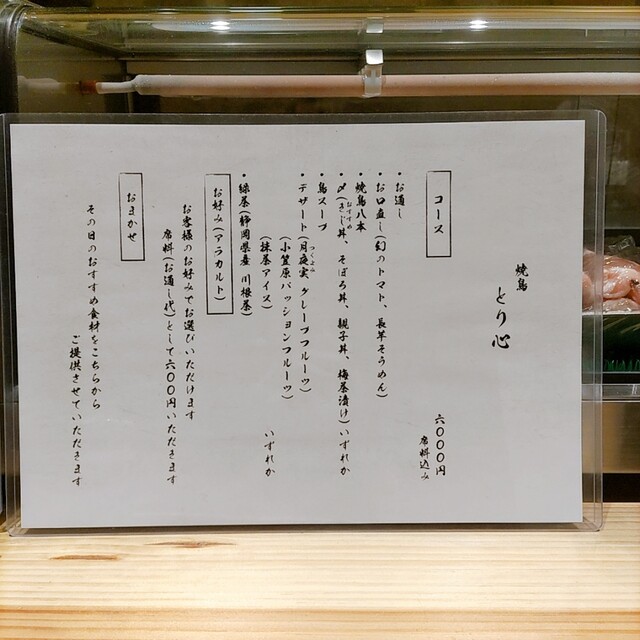 焼鳥
とり心
コース
六〇〇〇円
席料込み
・お通し
・お口直し(幻のトマト、長芋そうめん)
・焼鳥八本
おすすめ
・〆(きじ丼、そぼろ丼、親子丼、梅茶漬け)いずれか
・鳥スープ
つくよみ
・デザート(月夜実 グレープフルーツ)
(小笠原パッションフルーツ)
(抹茶アイス)
いずれか
・緑茶(静岡県産 川根茶)
お好み(アラカルト)
お客様のお好みでお選びいただけます
席料(お通し代)として六〇〇円いただきます
おまかせ
その日のおすすめ食材をこちらから
ご提供させていただきます